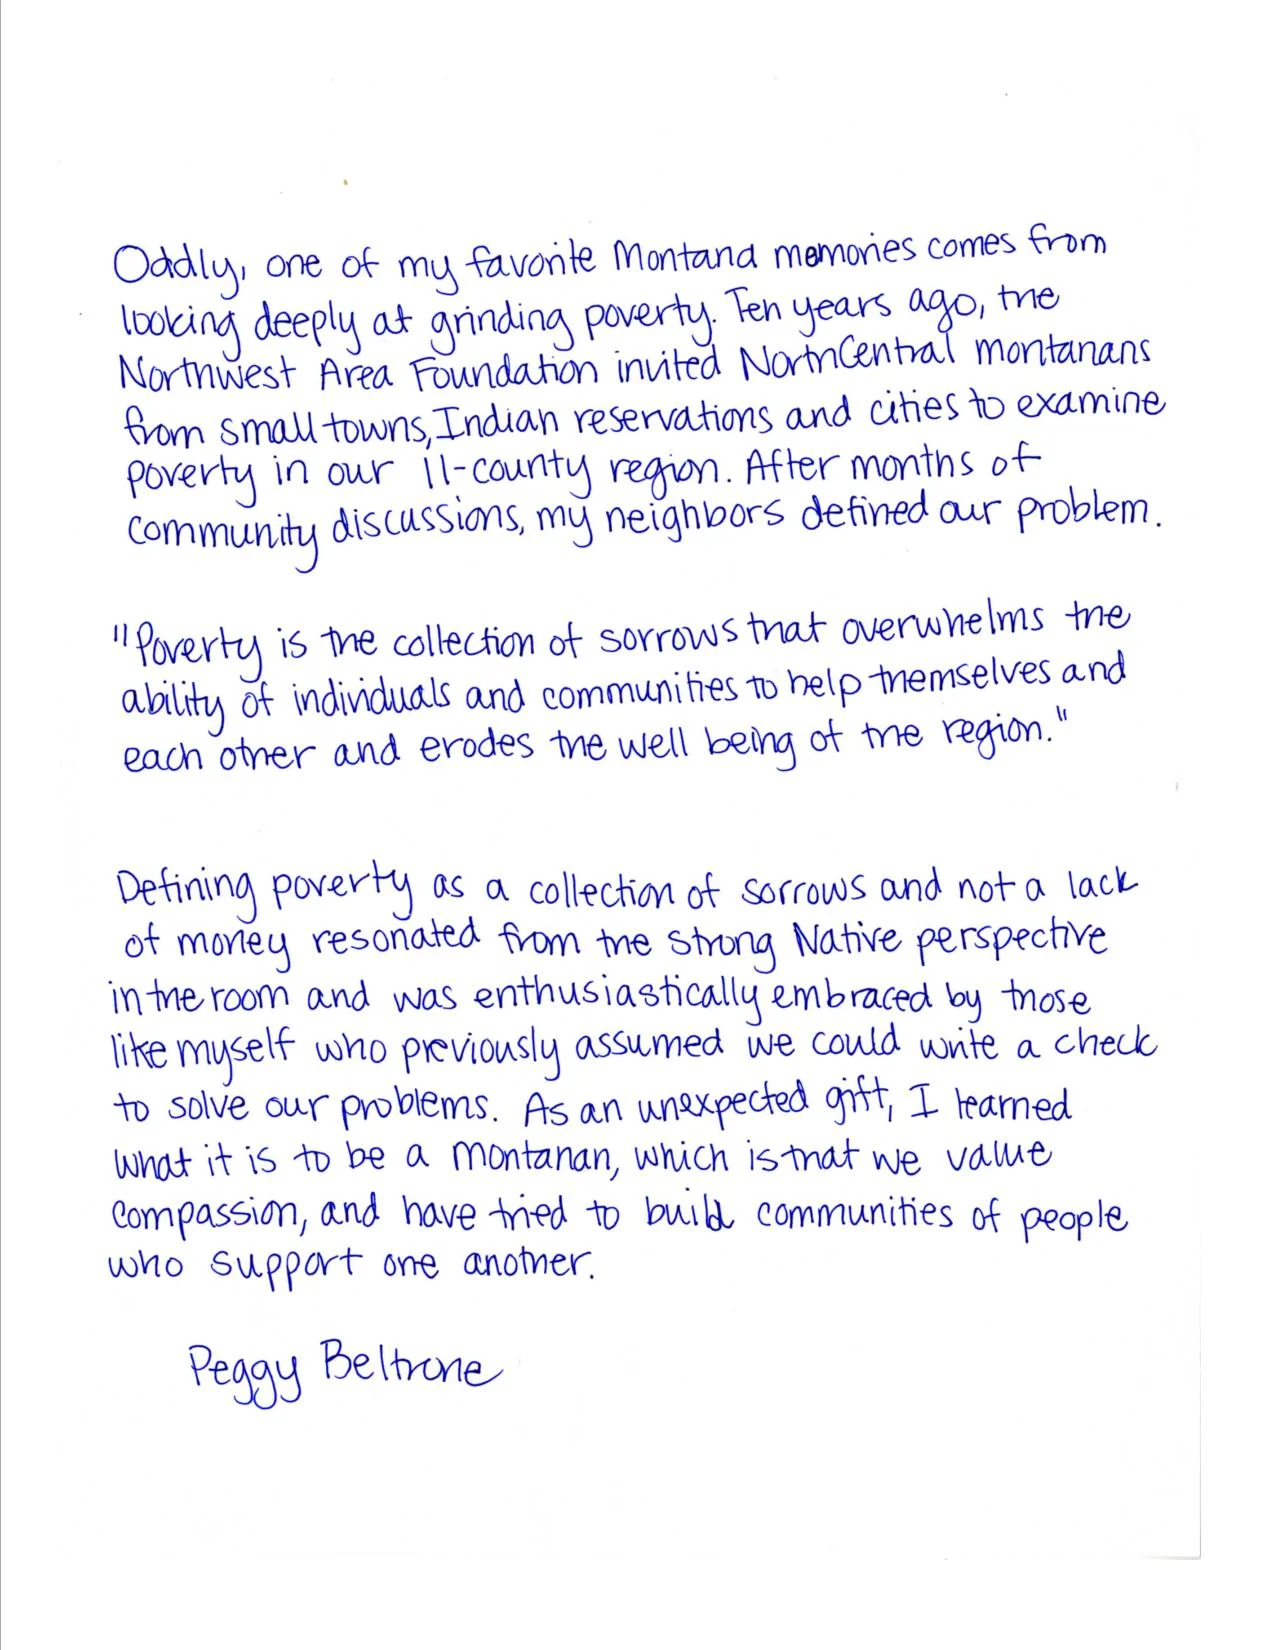 Oddly, one of my favorite Montana memories comes from
looking deeply at grinding poverty. Ten years ago, the
Northwest Area Foundation invited NorthCentral Montanans
from small towns, Indian reservations and cities to examine
poverty in our 11-county region. After months of
community discussions, my neighbors defined our problem.
"Poverty is the collection of sorrows that overwhelms the
ability of individuals and communities to help themselves and
each other and erodes the well being of the region."
Defining poverty as a collection of sorrows and not a lack
of money resonated from the strong Native perspective
in the room and was enthusiastically embraced by those
like myself who previously assumed we could write a check
to solve our problems. As an unexpected gift, I learned
what it is to be a Montanan, which is that we value
compassion, and have tried to build communities of people
who support one another.
Peggy Beltrone